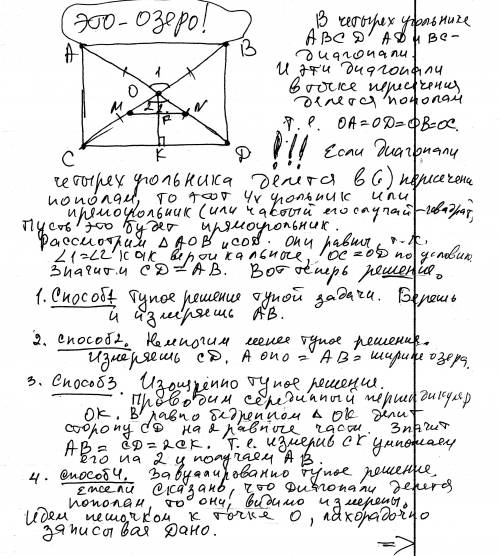 это - озеро!
A B
1
O
M 2 N
P
C K D
В четырех угольнике
ABCD AD и BC -
диагонали
И эти диагонали
в точке пересечения
делется пополам
т.е. OA=OD=OB=OC.
!!! Если диагонали
четырех угольника делется в (·) пересечения
пополам, то этот 4х угольник или
прямоугольник (или частый его случай - квадрат)
Пусть это будет прямоугольник.
Рассмотрим Δ AOB и COD. они равны, т.к.
∠1=∠2 как вертикальные, OC=OD по условию
Значит и CD=AB. Вот теперь решение.
1. Способ1 Тупое решение тупой задачи. Берешь
и измеряешь AB.
2. способ2. Немногим менее тупое решение.
Измеряешь CD. А оно = AB = ширине озера.
3. Способ3. Изощренно тупое решение.
Проводим серединный перпендикуляр
OK. В равно бедренном Δ OK делит
сторону CD на 2 равные части. Значит
AB = CD = 2CK. Т.е. измерив CK умножаем
его на 2 и получаем AB.
4. способ4. Завуалированно тупое решение.
Ежели сказано, что диагонали делется
пополам, то они, видимо измерены.
Идем пешочком к точке O, лихорадочно
записывая Дано.
=>